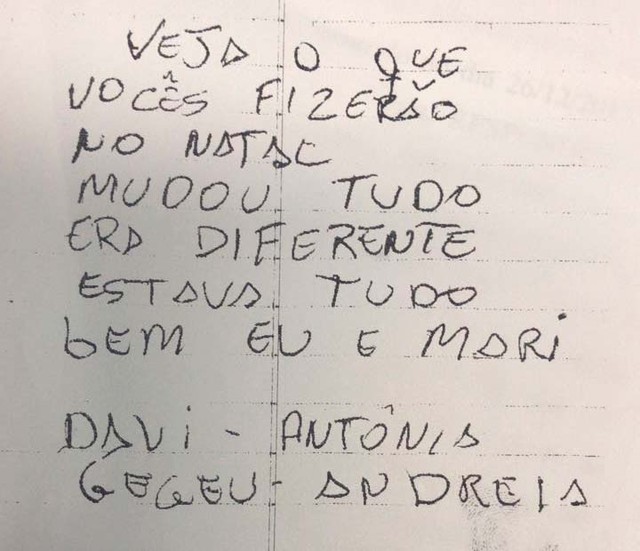 VEJA O QUE
VOCÊS FIZERÃO
NO NATAL
MUDOU TUDO
ERA DIFERENTE
ESTAVA TUDO
BEM EU E MARI
DAVI - ANTÔNIA
GEGEU - ANDREIA
26/12/20